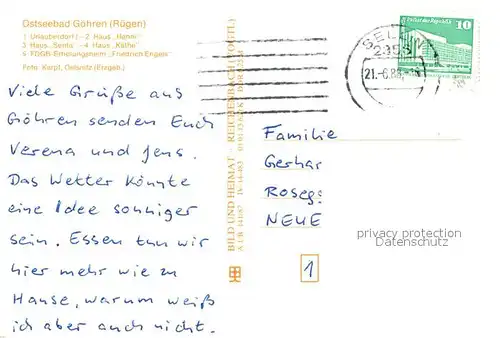 Ostseebad Göhren (Rügen)
1 Urlauberdorf - 2 Haus „Henni"
3 Haus „Senta" - 4 Haus „Käthe"
5 FDGB-Erholungsheim „Friedrich Engels"
Foto: Karpf, Oelsnitz (Erzgeb.)
Viele Grüße aus
Göhren senden Euch
Verena und Jens.
Das Wetter könnte
eine Idee sonniger
sein. Essen tun wir
hier mehr wie zu
Hause, warum weiß
ich aber auch nicht.
BILD UND HEIMAT REICHENBACH (VOGTL)
A 1/B 141/87 IV-14-483
SELLIN
2356
21.-6.88
10
Familie
Gerhar
Roseg
NEUE
1
privacy protection
Datenschutz